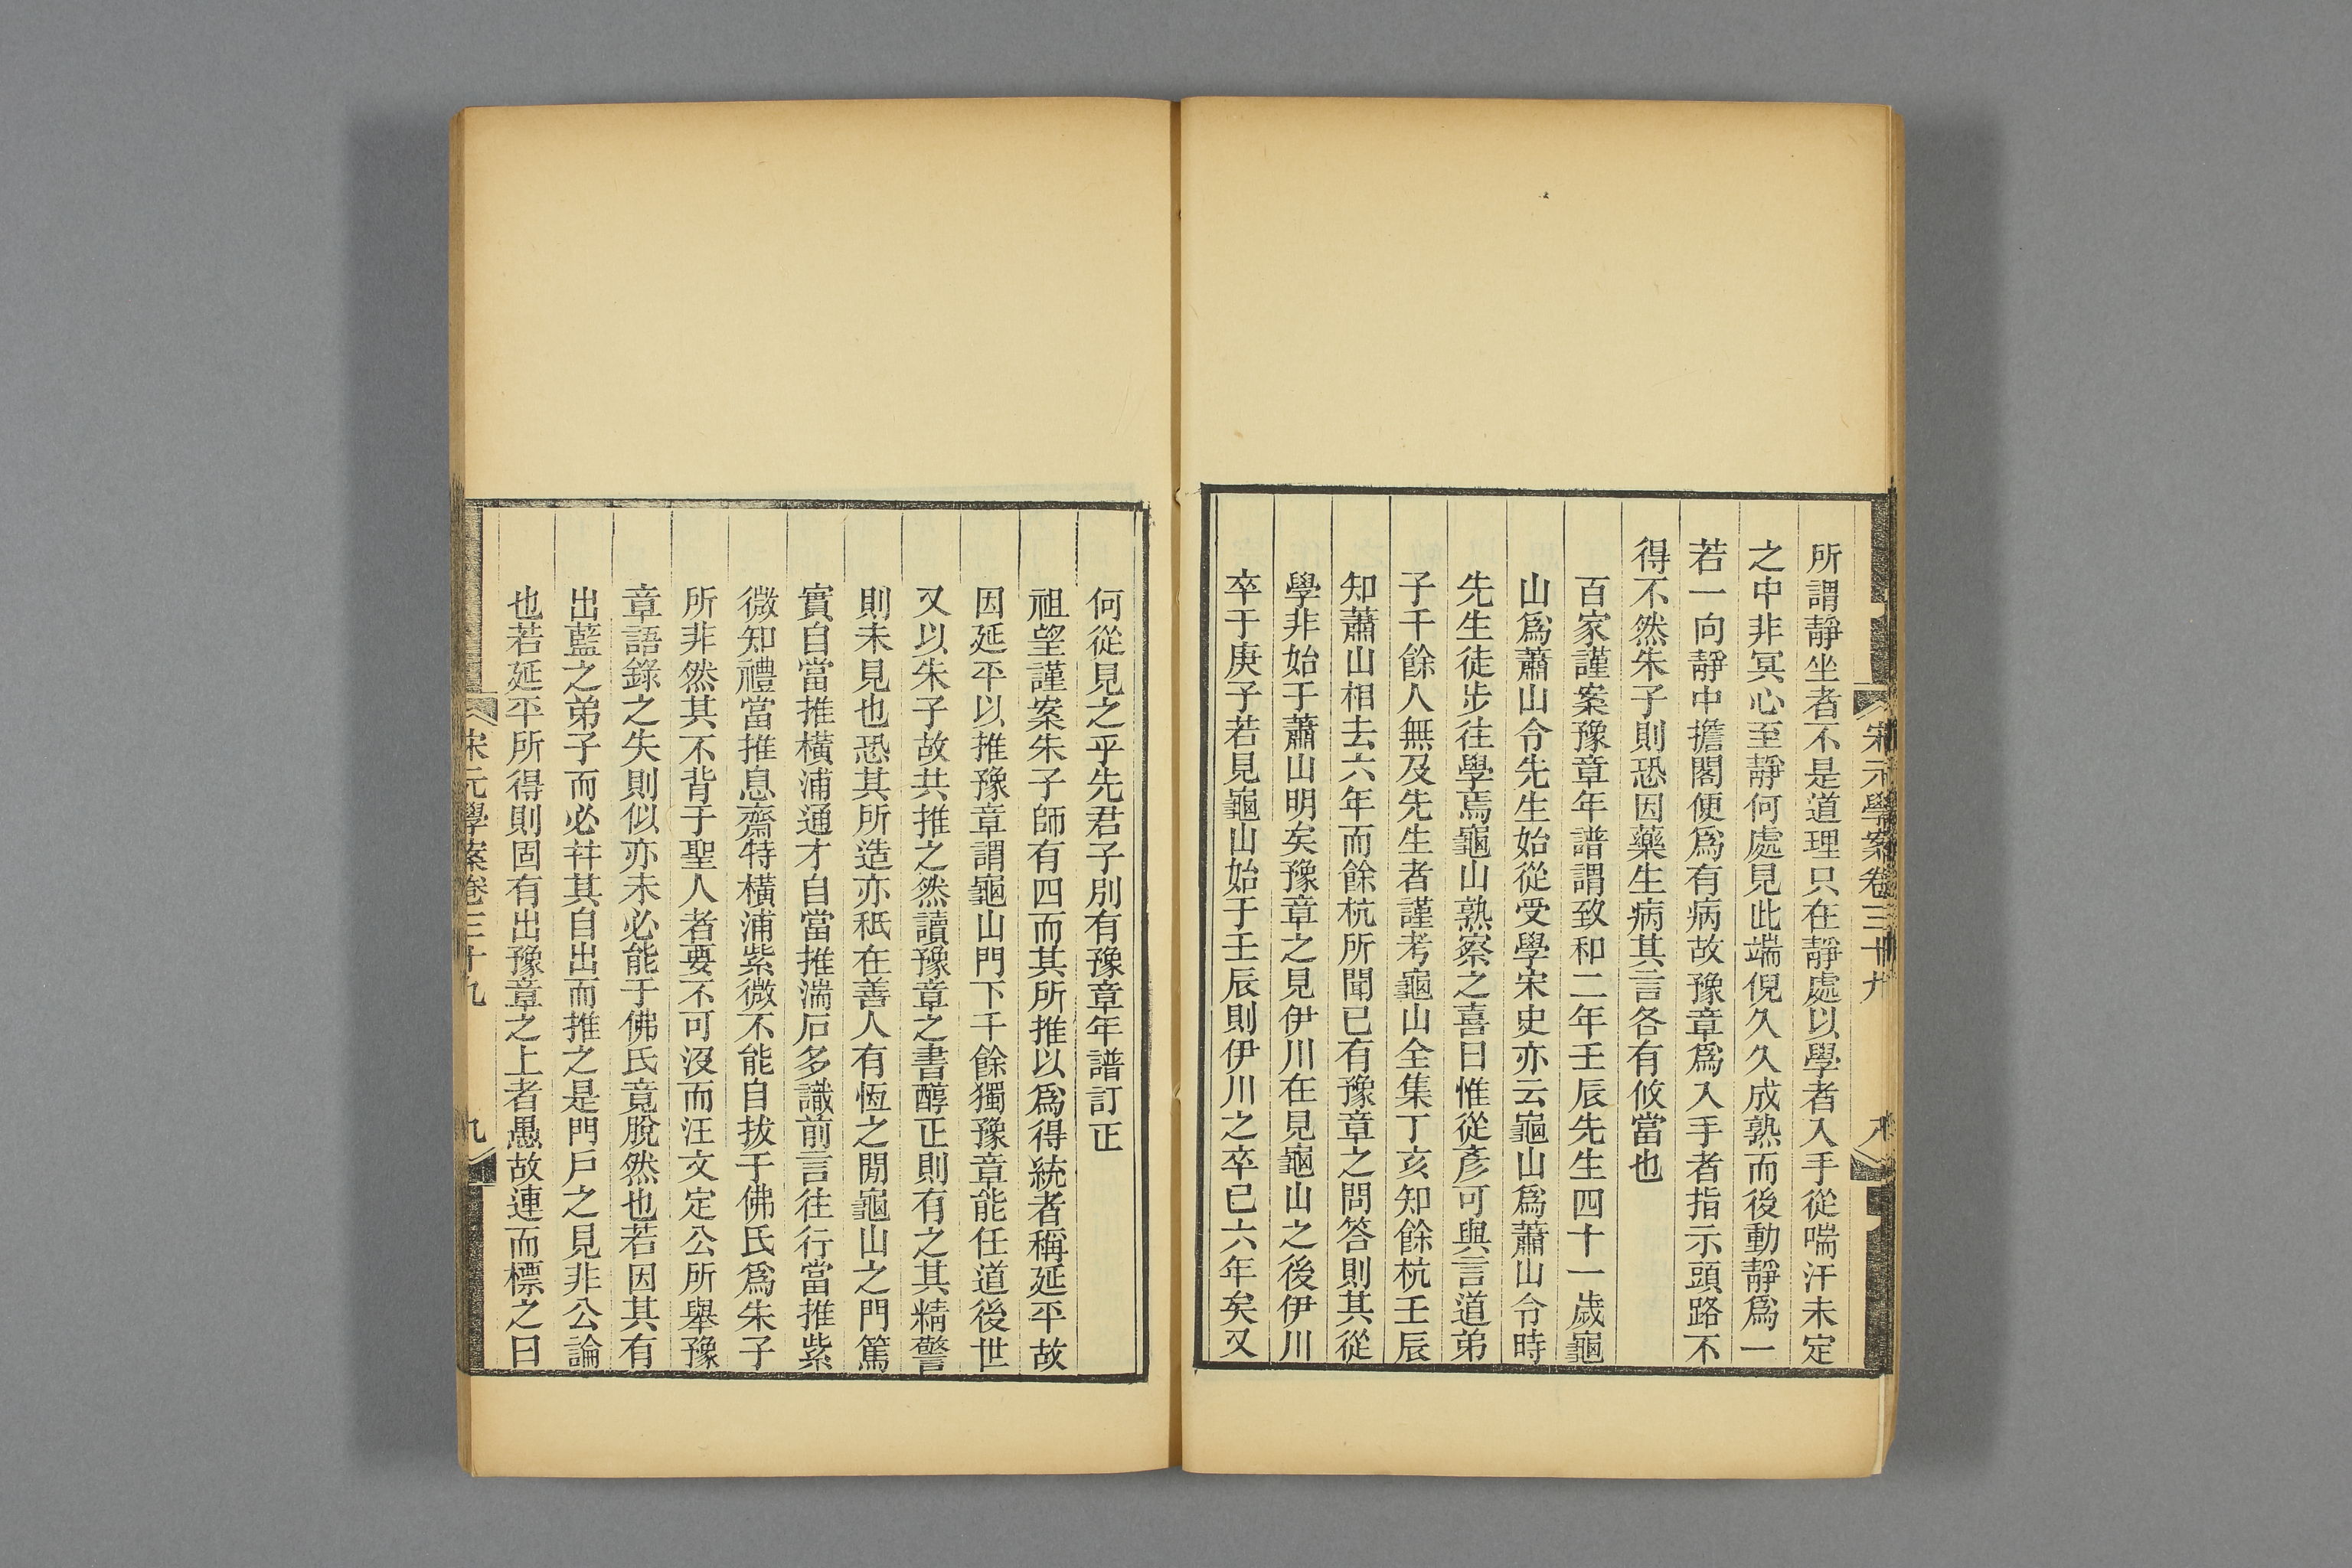 宋元學案卷三十九
八
所謂靜坐者不是道理只在靜處以學者入手從喘汗未定
之中非冥心至靜何處見此端倪久久成熟而後動靜爲一
若一向靜中擔閣便爲有病故豫章爲入手者指示頭路不
得不然朱子則恐因藥生病其言各有攸當也
百家謹案豫章年譜謂致和二年壬辰先生四十一歲龜
山爲蕭山令先生始從受學宋史亦云龜山爲蕭山令時
先生徒步往學焉龜山熟察之喜曰惟從彥可與言道弟
子千餘人無及先生者謹考龜山全集丁亥知餘杭壬辰
知蕭山相去六年而餘杭所聞已有豫章之問答則其從
學非始于蕭山明矣豫章之見伊川在見龜山之後伊川
卒于庚子若見龜山始于壬辰則伊川之卒已六年矣又
何從見之乎先君子別有豫章年譜訂正
祖望謹案朱子師有四而其所推以爲得統者稱延平故
因延平以推豫章謂龜山門下千餘獨豫章能任道後世
又以朱子故共推之然讀豫章之書醇正則有之其精警
則未見也恐其所造亦秪在善人有恆之閒龜山之門篤
實自當推橫浦通才自當推湍石多識前言往行當推紫
微知禮當推息齋特橫浦紫微不能自拔于佛氏爲朱子
所非然其不背于聖人者要不可沒而汪文定公所舉豫
章語錄之失則似亦未必能于佛氏竟脫然也若因其有
出藍之弟子而必并其自出而推之是門戶之見非公論
也若延平所得則固有出豫章之上者愚故連而標之曰
宋元學案卷三十九
九